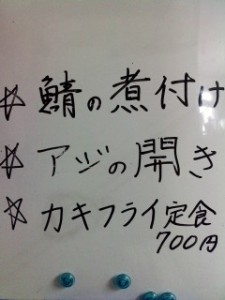 ☆ 鯖の煮付け
☆ アジの開き
☆ カキフライ定食
700円